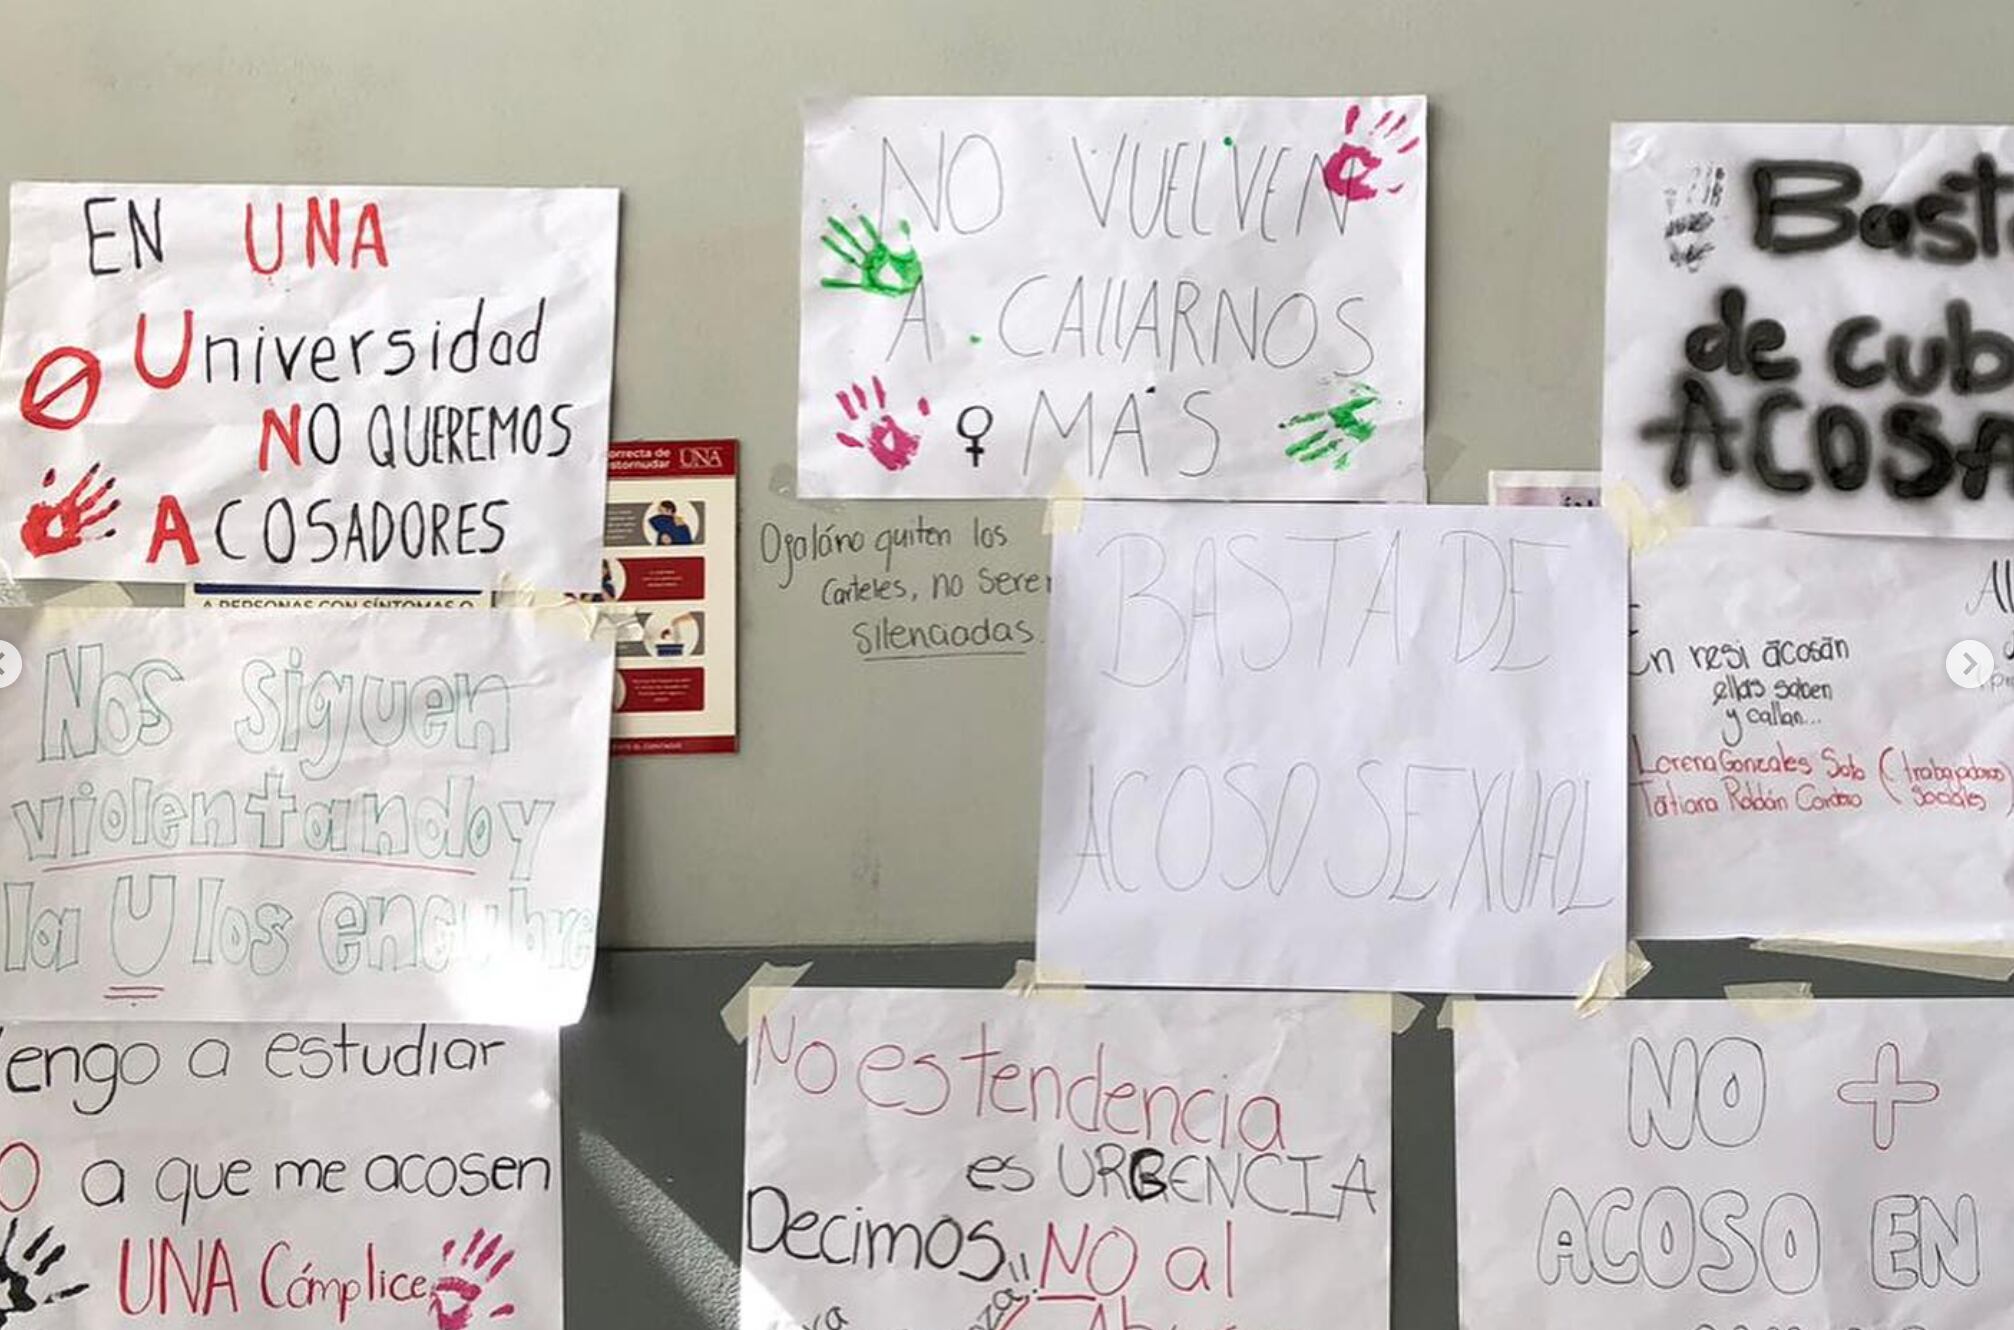 EN UNA
Universidad
NO QUEREMOS
ACOSADORES
NO VUELVEN
A CALLARNOS
MÁS
Bast
de cub
ACOSA
orrecta de
stornudar
UNA
Ojalá no quiten los
Carteles, no sere
silenciadas.
A PERSONAS CON SÍNTOMAS O
Nos siguen
violentando y
la U los encubre
BASTA DE
ACOSO SEXUAL
En resi acosan
ellas saben
y callan...
Lorena Gonzales Soto (trabajadoras
Tatiana Roldán Cordero sociales)
engo a estudiar
O a que me acosen
UNA Cómplice
No es tendencia
es URGENCIA
Decimos
NO al
NO +
ACOSO EN